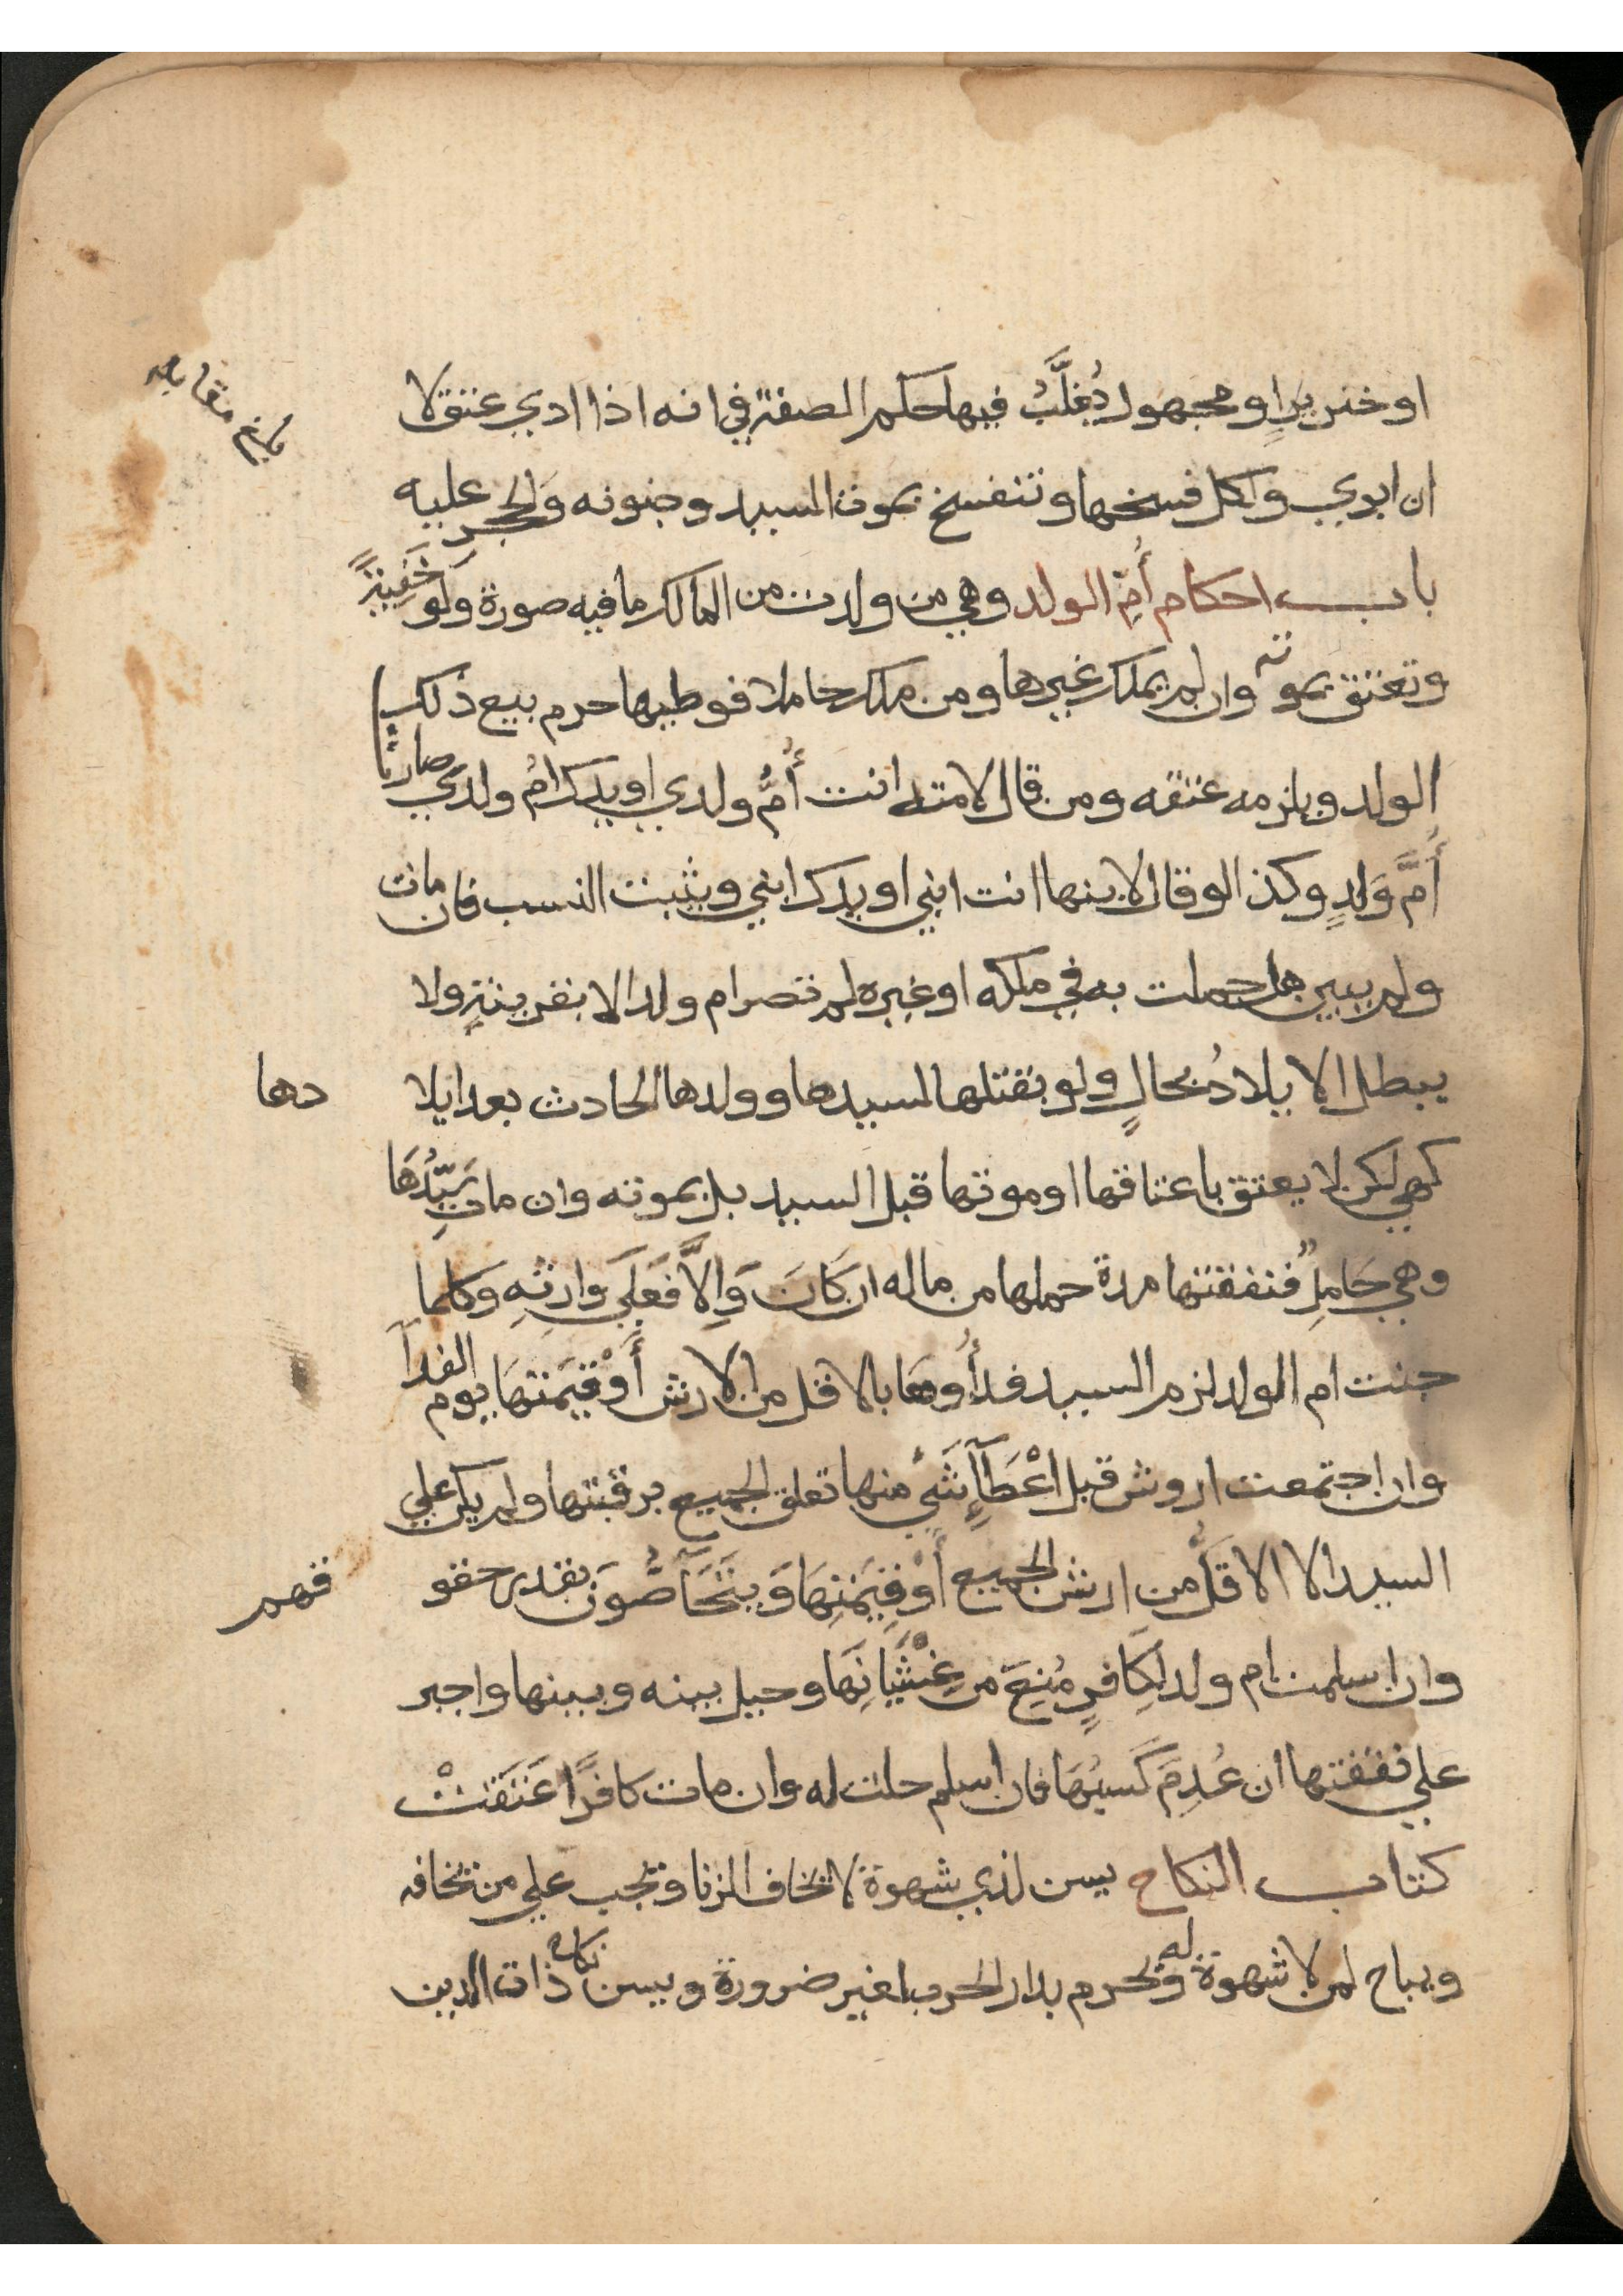 بلغ مقابله
او خنزيرٍ او مجهول يُغلَّبُ فيها حكم الصفة في انه اذا ادي عتق لا
ان ابري ولكل فسخها وتنفسخ بموت السيد وجنونه وَالحجرِ عليه
باب احكام أُمّ الولد وهي من ولدت من المالك ما فيه صورة وَلو خَفِيةً
وتعتق بموته وان لم يملك غيرها ومن ملك حاملا فوطيها حرم بيع ذلك
الولد ويلزمه عتقه ومن قال لامته انت أُمُّ ولدي او يدك امُ ولدي صارت
أُمَّ وَلدٍ وكذا لو قال لابنها انت ابني او يدك ابني ويثبت النسب فان مات
ولم يبين هل حملت به في ملكه او غيره لم تصر ام ولد الا بقرينةٍ ولا
يبطل الايلادُ بحالٍ ولو بقتلها لسيدها وولدها الحادث بعد ايلا
دها
كهي لكن لا يعتق باعتاقها او موتها قبل السيد بل بموته وان مات سَيِّدُهَا
وهي حَامِلٌ فنفقتها مدة حملها من ماله ان كَانَ وَاِلاَّ فَعَلَي وَارِثِهِ وَكلما
جنت ام الولد لزم السيد فدأُوهَا بالاقل من الارش أَوْ قِيمَتِهَا يوم الفدآ
وان اجتمعت اروش قبل اعْطَآءِ شَيْءٍ منها تعلق الجميع برقبتها ولم يكن علي
السيد الا الاقلُّ من ارش الجميع أَوْ قِيمَتِهَا وَيَتَحَآصُّونَ بقدر حقو
قهم
وان اسلمت ام ولد لِكَافرٍ مُنِعَ من غِشْيَانِهَا وحيل بينه وبينها واجبر
علي نفقتها ان عُدِمَ كَسبُهَا فان اسلم حلت له وان مات كافرًا عَتَقَتْ
كتاب النكاح يسن لذي شهوة لا يخاف الزنا ويجب علي من يخافه
ويباح لمن لا شهوة له ويحرم بدار الحرب لغير ضرورة ويسن نكاح ذات الدين